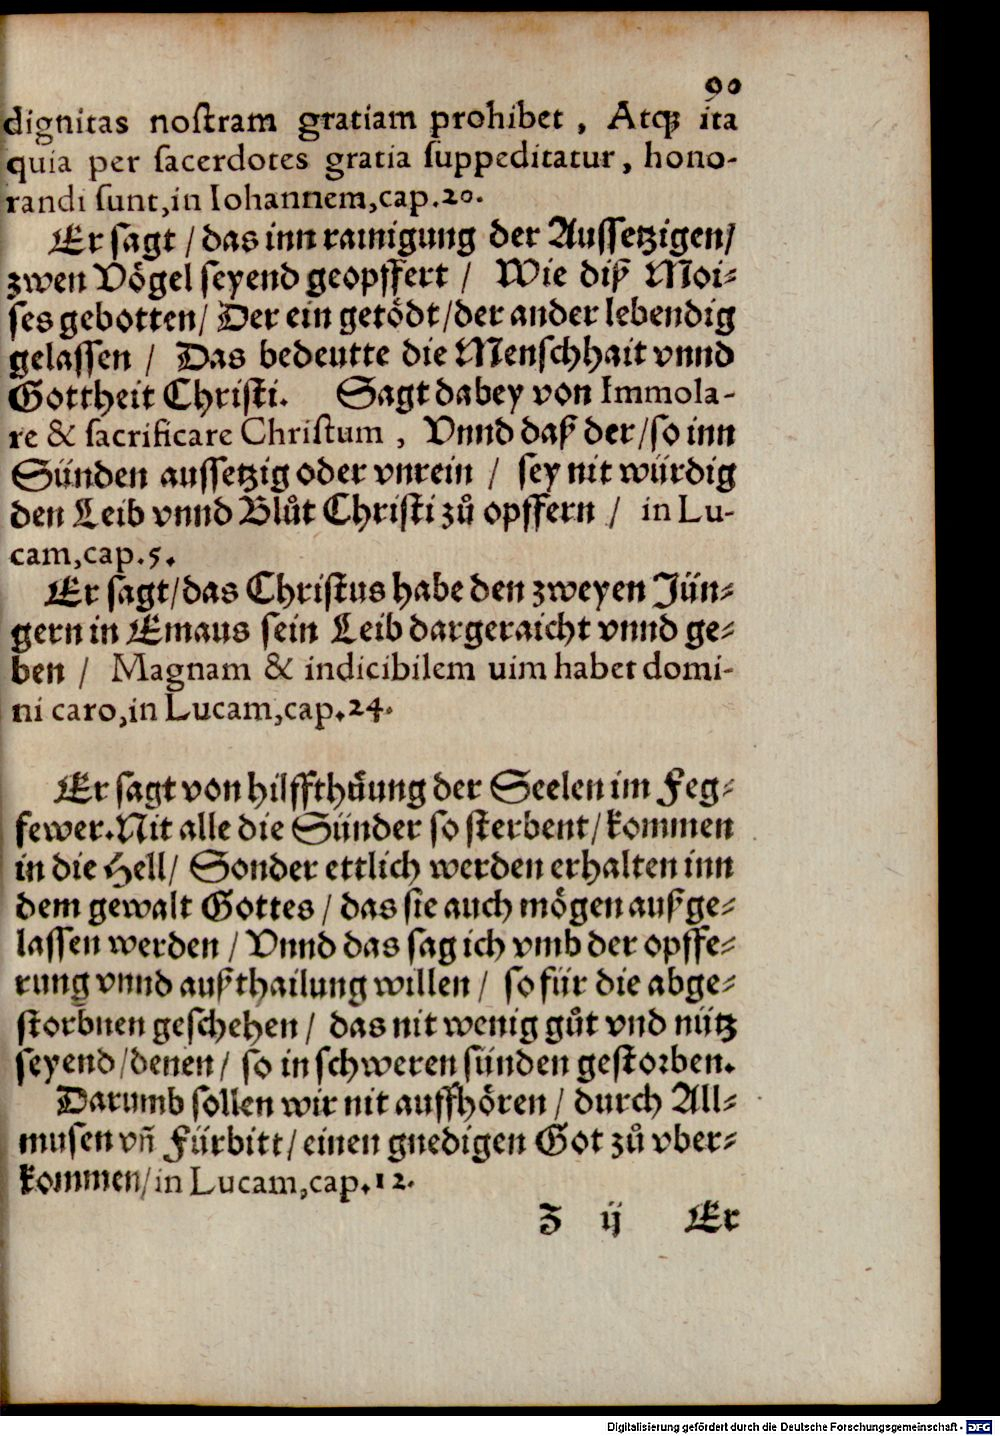 90
dignitas noſtram gratiam prohibet, Atqꝫ ita
quia per ſacerdotes gratia ſuppeditatur, hono-
randi ſunt, in Iohannem, cap. 20.
Er ſagt / das inn rainigung der Auſſetzigen /
zwen Vögel ſeyend geopffert / Wie diß Moi⸗
ſes gebotten / Der ein getödt / der ander lebendig
gelaſſen / Das bedeutte die Menſchhait vnnd
Gottheit Chriſti. Sagt dabey von Immola-
re & ſacrificare Chriſtum, Vnnd daß der / ſo inn
Sünden auſſetzig oder vnrein / ſey nit würdig
den Leib vnnd Blůt Chriſti zů opffern / in Lu-
cam, cap. 5.
Er ſagt / das Chriſtus habe den zweyen Jün⸗
gern in Emaus ſein Leib dargeraicht vnnd ge⸗
ben / Magnam & indicibilem uim habet domi-
ni caro, in Lucam, cap. 24.
Er ſagt von hilffthůung der Seelen im Feg⸗
fewer. Nit alle die Sünder ſo ſterbent / kommen
in die Hell / Sonder ettlich werden erhalten inn
dem gewalt Gottes / das ſie auch mögen außge⸗
laſſen werden / Vnnd das ſag ich vmb der opffe⸗
rung vnnd außthailung willen / ſo für die abge⸗
ſtorbnen geſchehen / das nit wenig gůt vnd nütz
ſeyend / denen / ſo in ſchweren ſünden geſtorben.
Darumb ſollen wir nit auffhören / durch All⸗
muſen vñ Fürbitt / einen gnedigen Got zů vber⸗
kommen / in Lucam, cap. 12.
Z ij Er
Digitalisierung gefördert durch die Deutsche Forschungsgemeinschaft - DFG